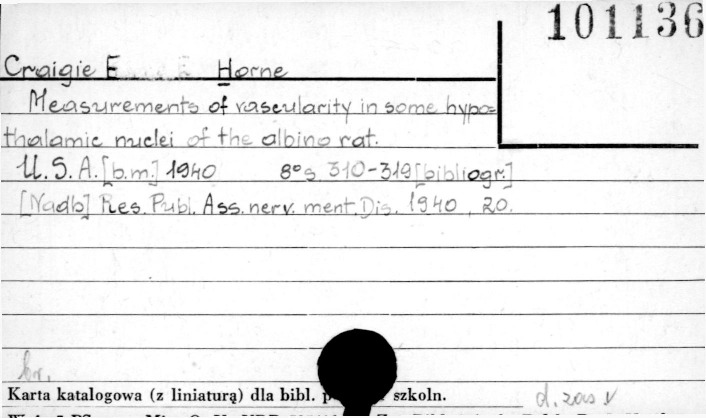 101136
Craigie E Horne
Measurements of vascularity in some hypo=
thalamic nuclei of the albino rat.
U.S.A. [b.m.] 1940 8° s. 310-319 [bibliogr.]
[Nadb] Res. Publ. Ass. nerv. ment. Dis. 1940, 20.
br.
Karta katalogowa (z liniaturą) dla bibl. szkoln.
d. zas v